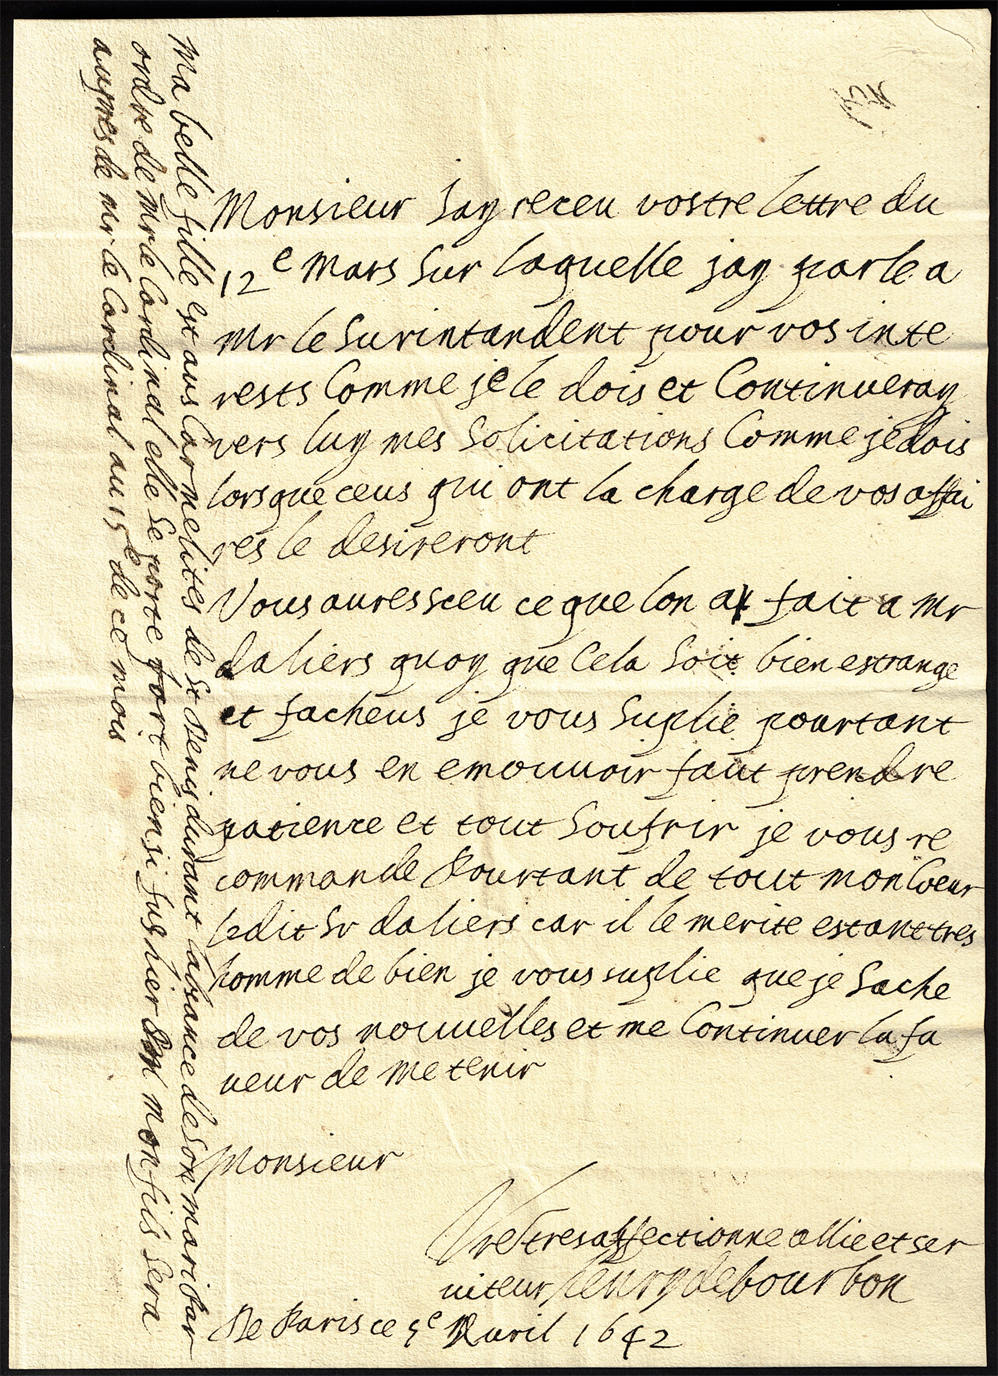 Monsieur Jay receu vostre lettre du
12e Mars Sur laquelle jay parle a
Mr le Surintandent pour vos inte
rests Comme je le dois et Continueray
vers luy mes Solicitations Comme je dois
lorsque ceus qui ont la charge de vos affai
res le desireront
Vous aures sceu ce que lon a fait a Mr
daliers quoy que Cela Soit bien estrange
et facheus je vous Suplie pourtant
ne vous en emouuoir faut prendre
patience et tout Soufrir je vous re
commande Pourtant de tout mon Coeur
ledit Sr daliers car il le merite estant tres
homme de bien je vous suplie que je Sache
de vos nouuelles et me Continuer la fa
ueur de me tenir
Monsieur
Vre tres affectionne allie et ser
uiteur henry de bourbon
De Paris ce 5e Auril 1642
Ma belle fille est aus Carmelites de St Denis durant labsance de Son mari Par
ordre de Mr le Cardinal elle Se porte fort bien si fus hier Mon fils Sera
aupres de Mr le Cardinal au 15e de ce mois